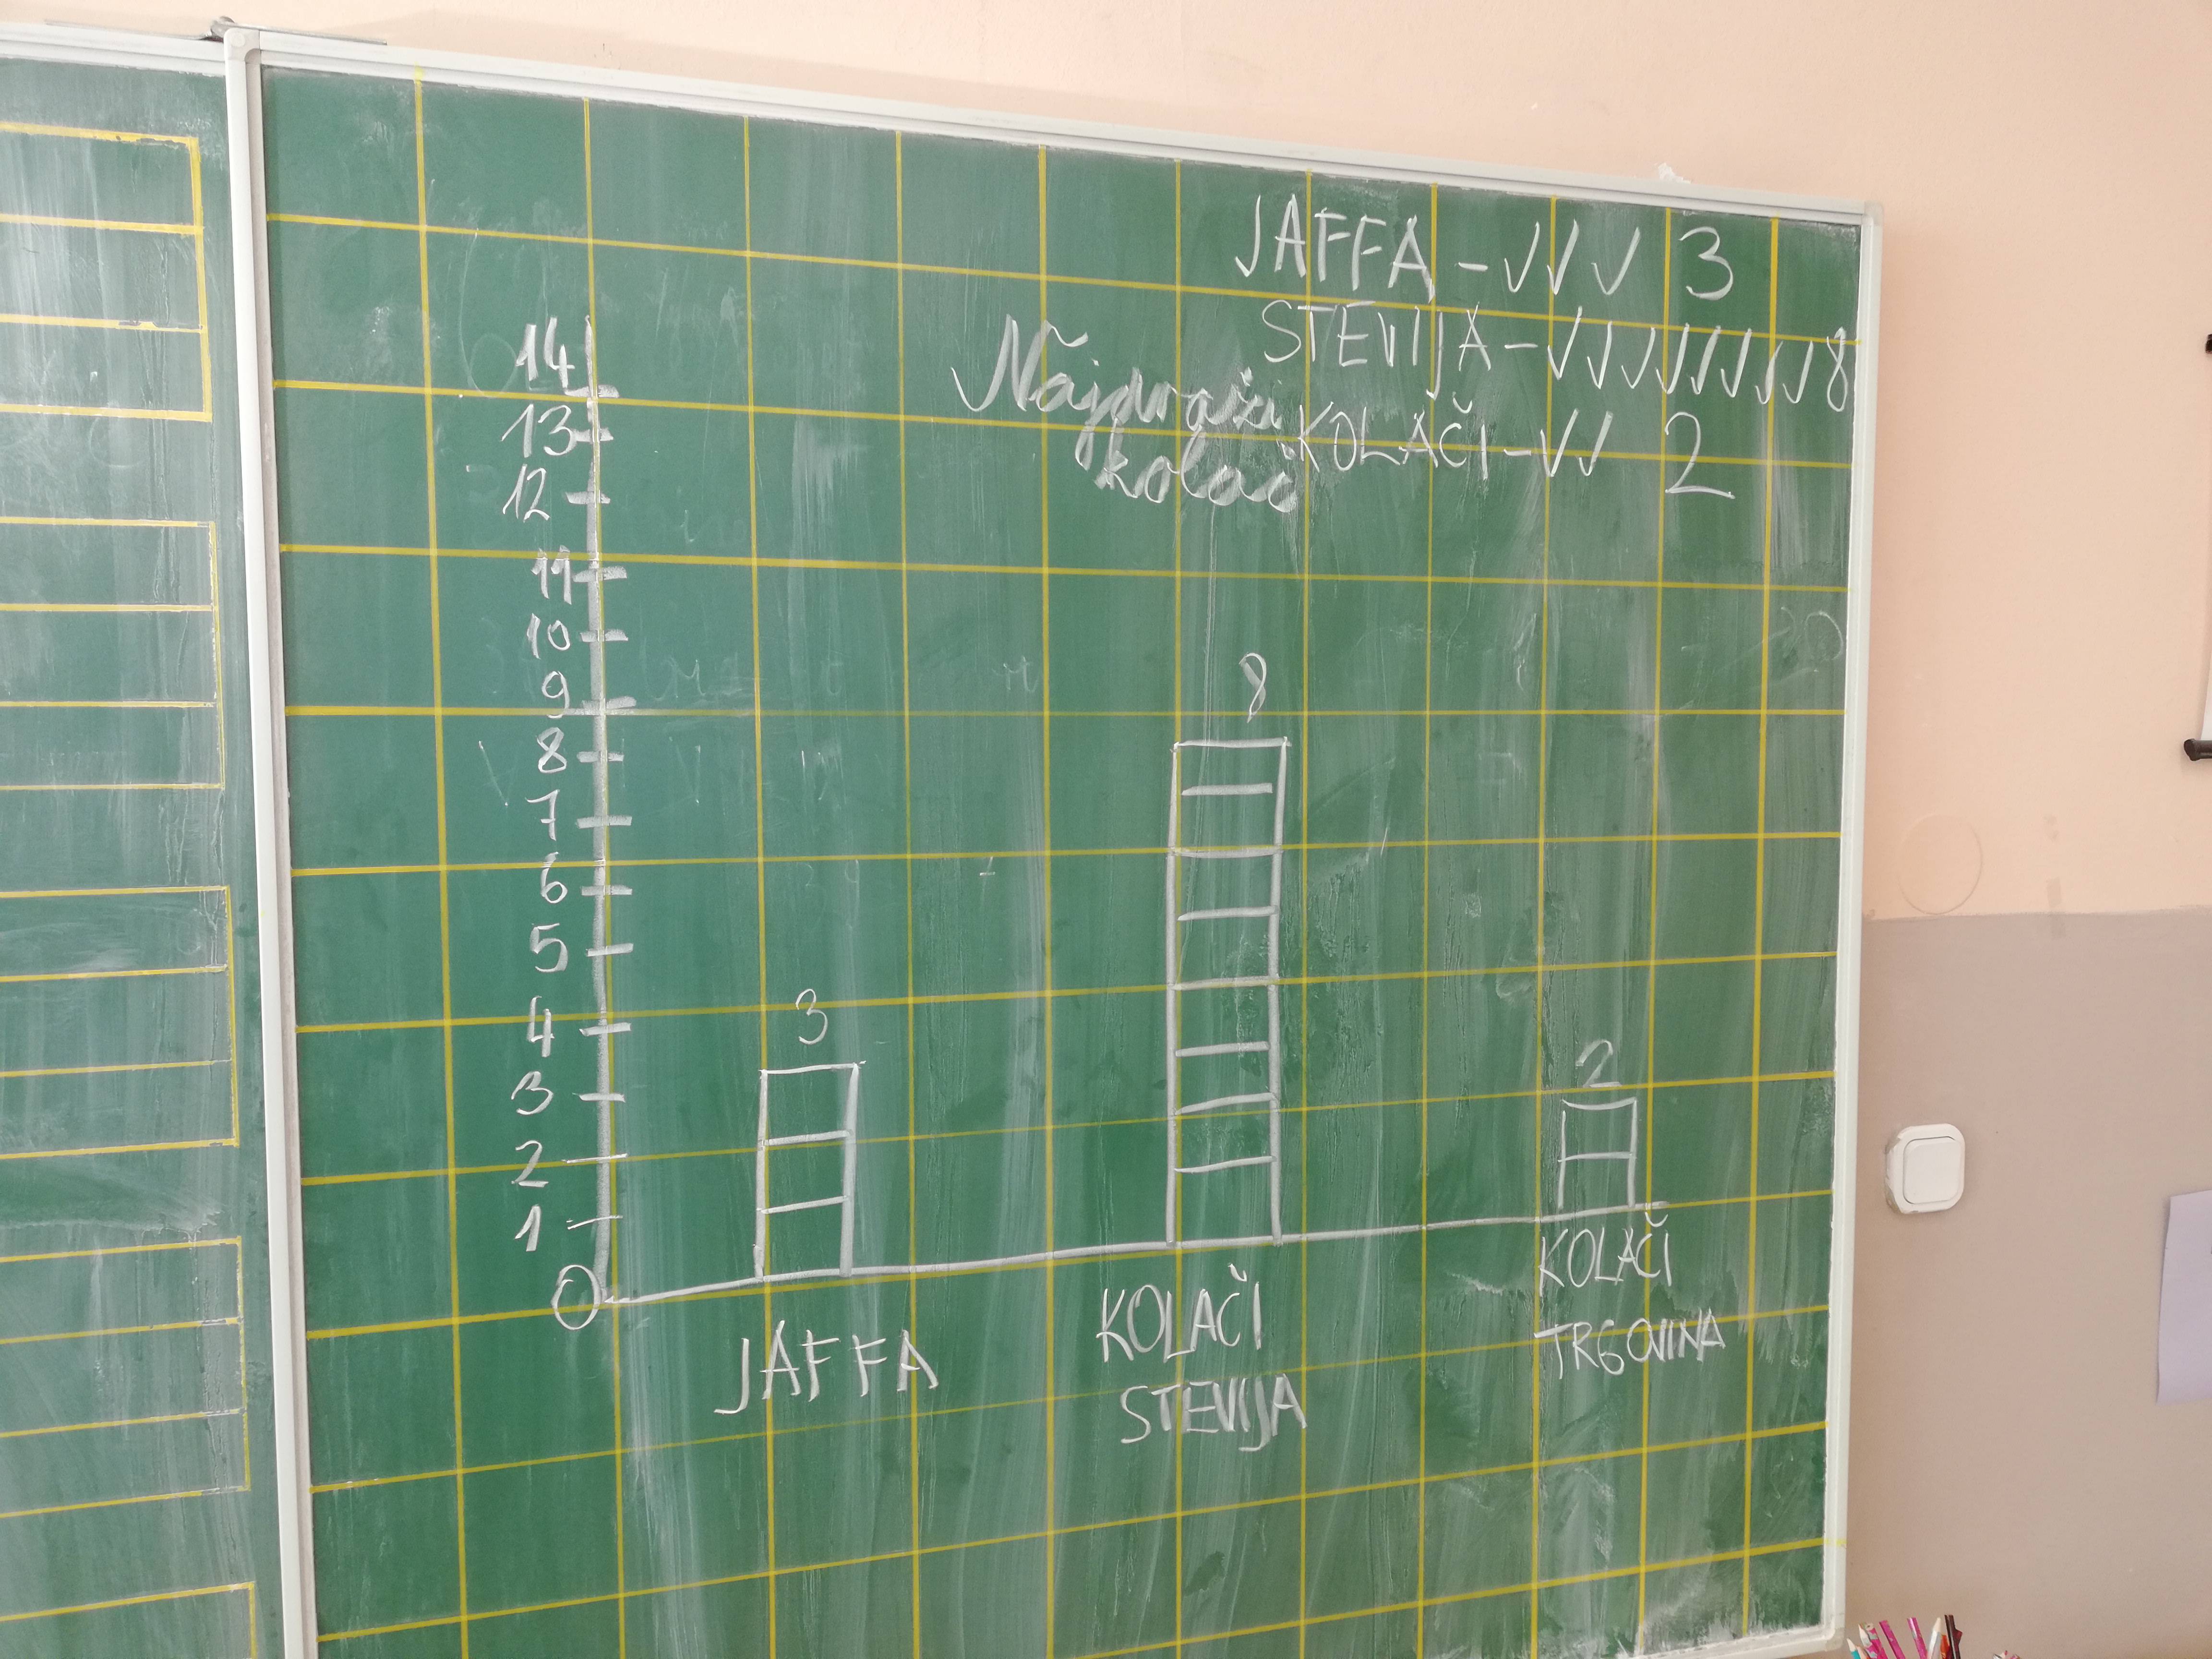 JAFFA - √√√ 3
STEVIJA - √√√√√√√√ 8
Najdraži
kolač
KOLAČI - √√ 2
14
13
12
11
10
9
8
7
6
5
4
3
2
1
0
3
8
2
JAFFA
KOLAČI
STEVIJA
KOLAČI
TRGOVINA